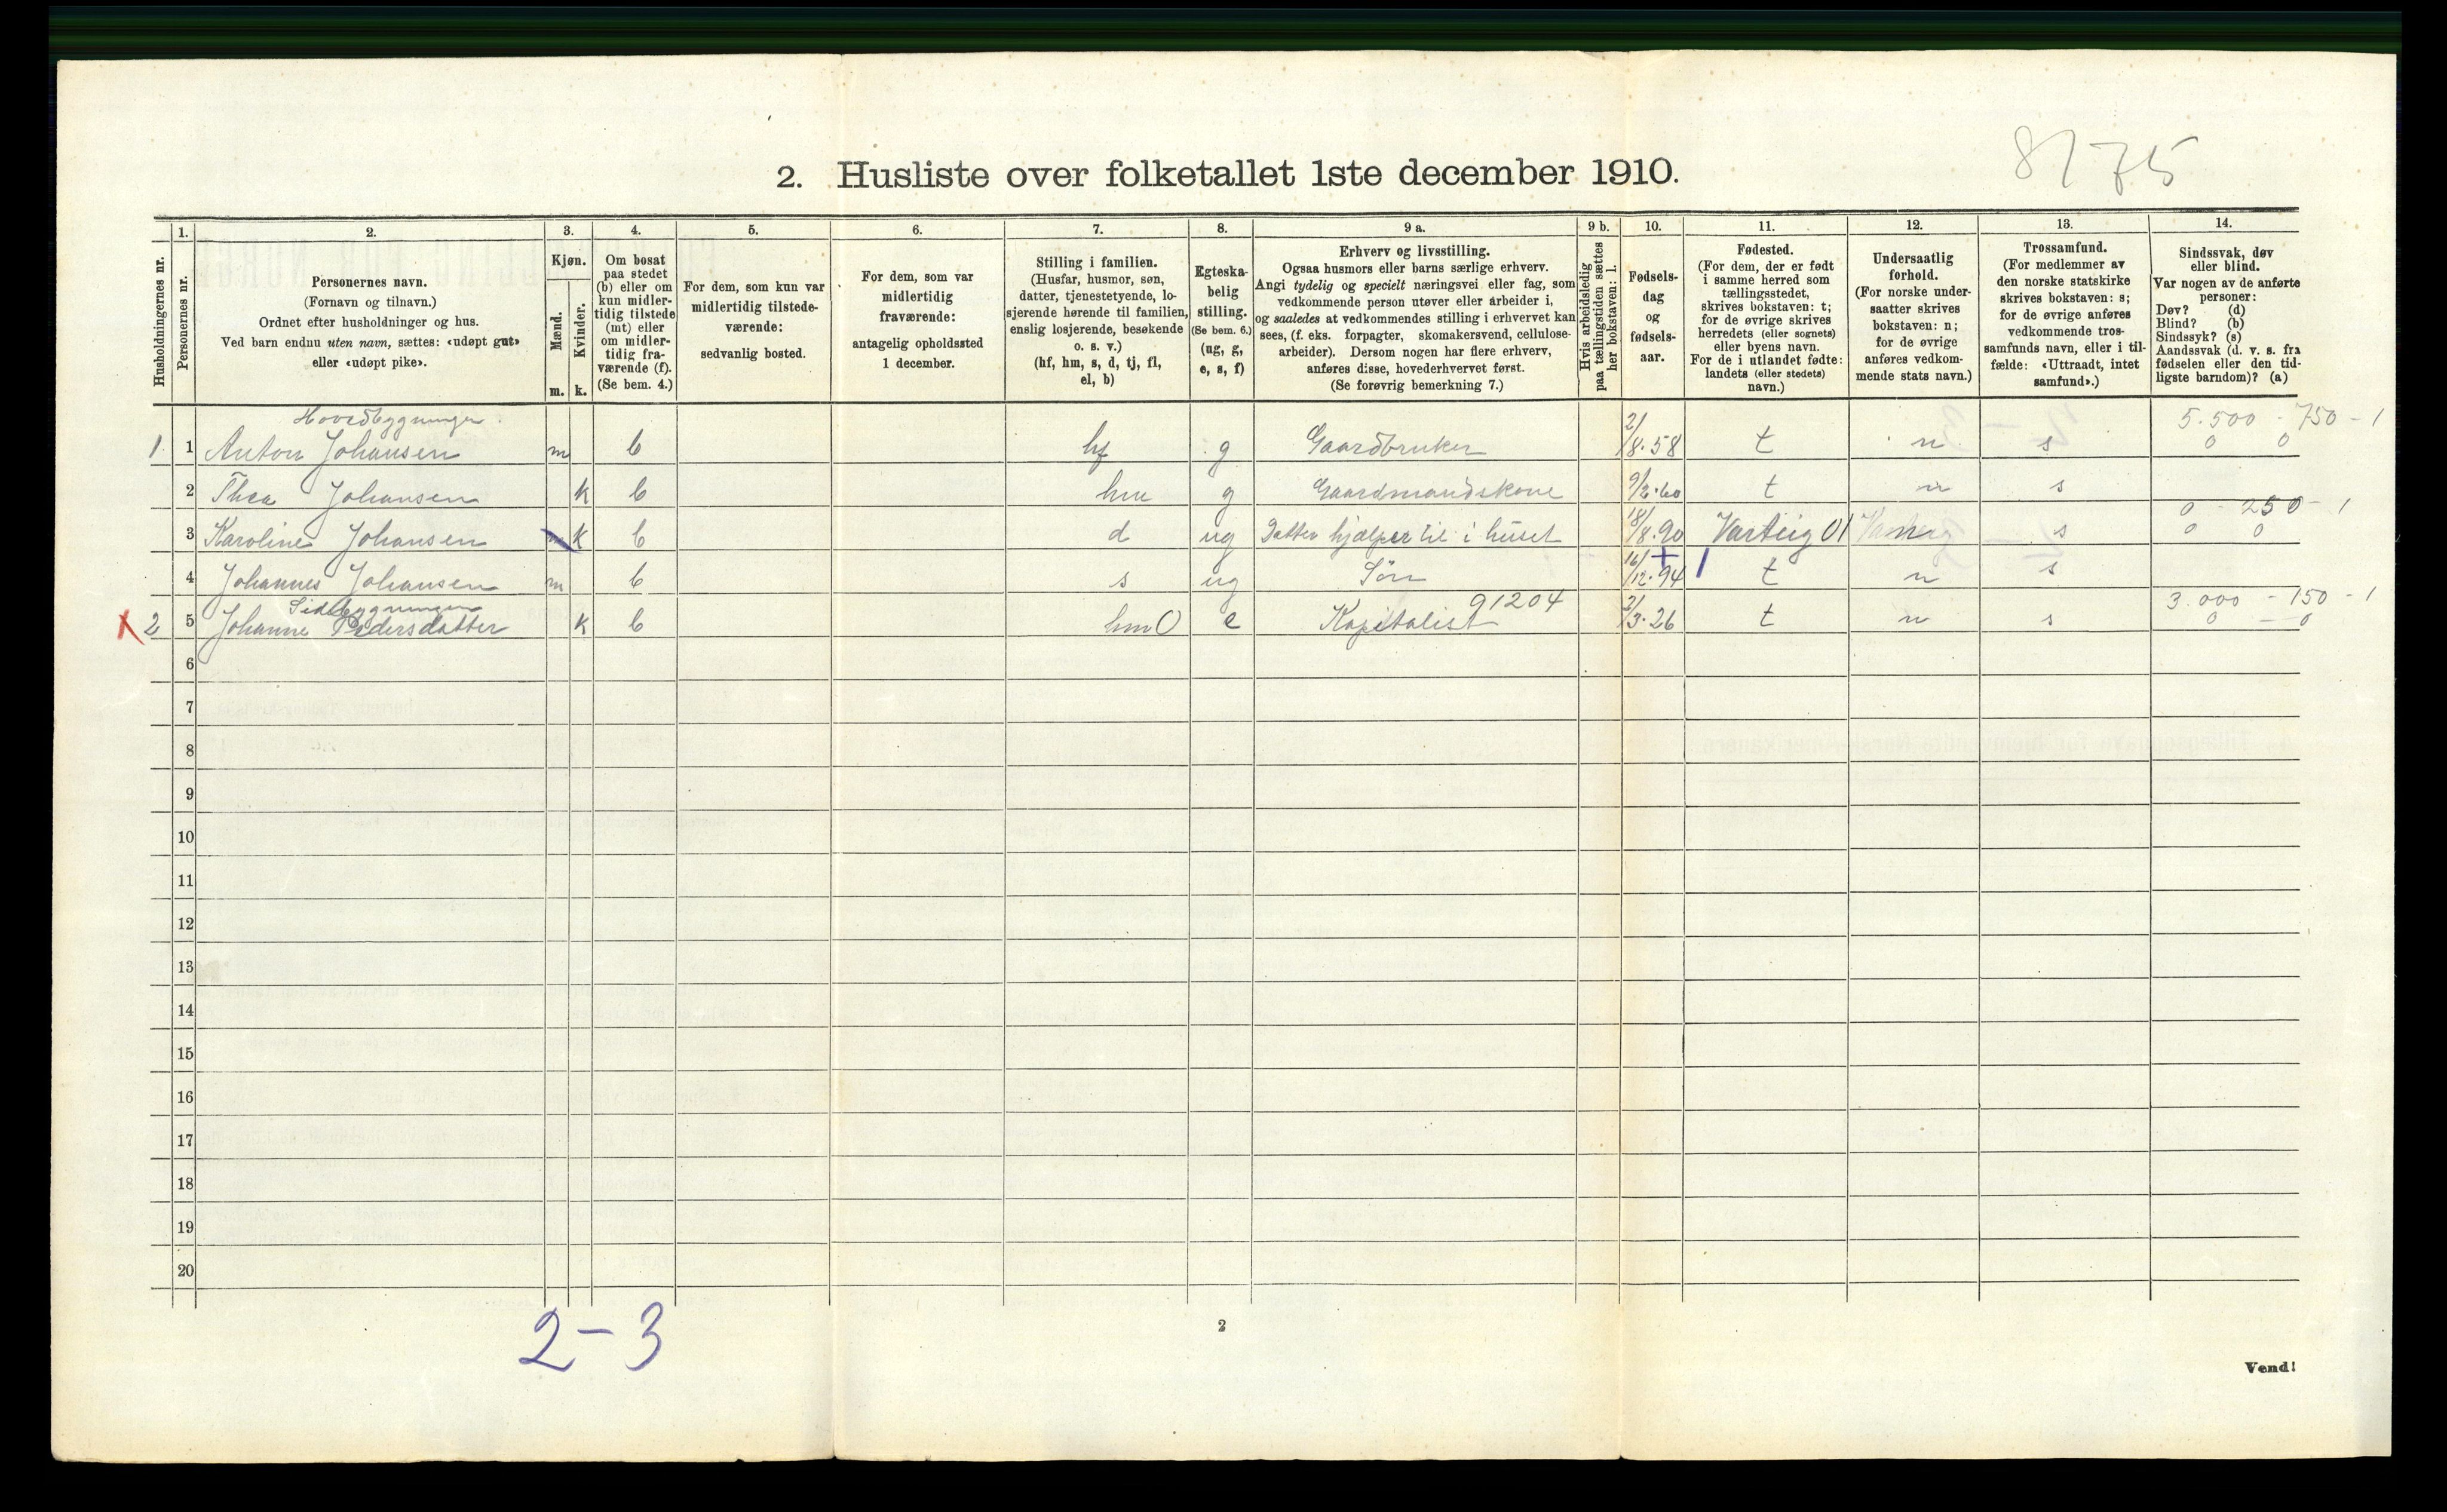 8175
2. Husliste over folketallet 1ste december 1910.
Husholdningernes nr.
1.
Personernes nr.
2.
Personernes navn.
(Fornavn og tilnavn.)
Ordnet efter husholdninger og hus.
Ved barn endnu uten navn, sættes: «udøpt gut»
eller «udøpt pike».
3.
Kjøn.
Mænd.
m.
Kvinder.
k.
4.
Om bosat
paa stedet
(b) eller om
kun midler-
tidig tilstede
(mt) eller
om midler-
tidig fra-
værende (f).
(Se bem. 4.)
5.
For dem, som kun var
midlertidig tilstede-
værende:
sedvanlig bosted.
6.
For dem, som var
midlertidig
fraværende:
antagelig opholdssted
1 december.
7.
Stilling i familien.
(Husfar, husmor, søn,
datter, tjenestetyende, lo-
sjerende hørende til familien,
enslig losjerende, besøkende
o. s. v.)
(hf, hm, s, d, tj, fl,
el, b)
8.
Egteska-
belig
stilling.
(Se bem. 6.)
(ug, g,
e, s, f)
9 a.
Erhverv og livsstilling.
Ogsaa husmors eller barns særlige erhverv.
Angi tydelig og specielt næringsvei eller fag, som
vedkommende person utøver eller arbeider i,
og saaledes at vedkommendes stilling i erhvervet kan
sees, (f. eks. forpagter, skomakersvend, cellulose-
arbeider). Dersom nogen har flere erhverv,
anføres disse, hovederhvervet først.
(Se forøvrig bemerkning 7.)
9 b.
Hvis arbeidsledig
paa tællingstiden sættes
her bokstaven: l.
10.
Fødsels-
dag
og
fødsels-
aar.
11.
Fødested.
(For dem, der er født
i samme herred som
tællingsstedet,
skrives bokstaven: t;
for de øvrige skrives
herredets (eller sognets)
eller byens navn.
For de i utlandet fødte:
landets (eller stedets)
navn.)
12.
Undersaatlig
forhold.
(For norske under-
saatter skrives
bokstaven: n;
for de øvrige
anføres vedkom-
mende stats navn.)
13.
Trossamfund.
(For medlemmer av
den norske statskirke
skrives bokstaven: s;
for de øvrige anføres
vedkommende tros-
samfunds navn, eller i til-
fælde: «Uttraadt, intet
samfund».)
14.
Sindssvak, døv
eller blind.
Var nogen av de anførte
personer:
Døv? (d)
Blind? (b)
Sindssyk? (s)
Aandssvak (d. v. s. fra
fødselen eller den tid-
ligste barndom)? (a)
Hovedbygningen.
5.500 - 750 - 1
1 1 Anton Johansen m b hf g Gaardbruker 2/8.58 t n s 0 0
2 Thea Johansen k b hm g Gaardmandskone 9/2.60 t n s
0 - 250 - 1
3 Karoline Johansen k b d ug Datter hjælper til i huset 18/8.90 Varteig 01 n s 0 0
4 Johannes Johansen m b s ug Søn 16/12.94 t n s
Sidebygningen
91204
3.000 - 150 - 1
X 2 5 Johanne Pedersdatter k b hm 0 e Kapitalist 2/3.26 t n s 0 - 0
6
7
8
9
10
11
12
13
14
15
16
17
18
19
20
2-3
2
Vend!